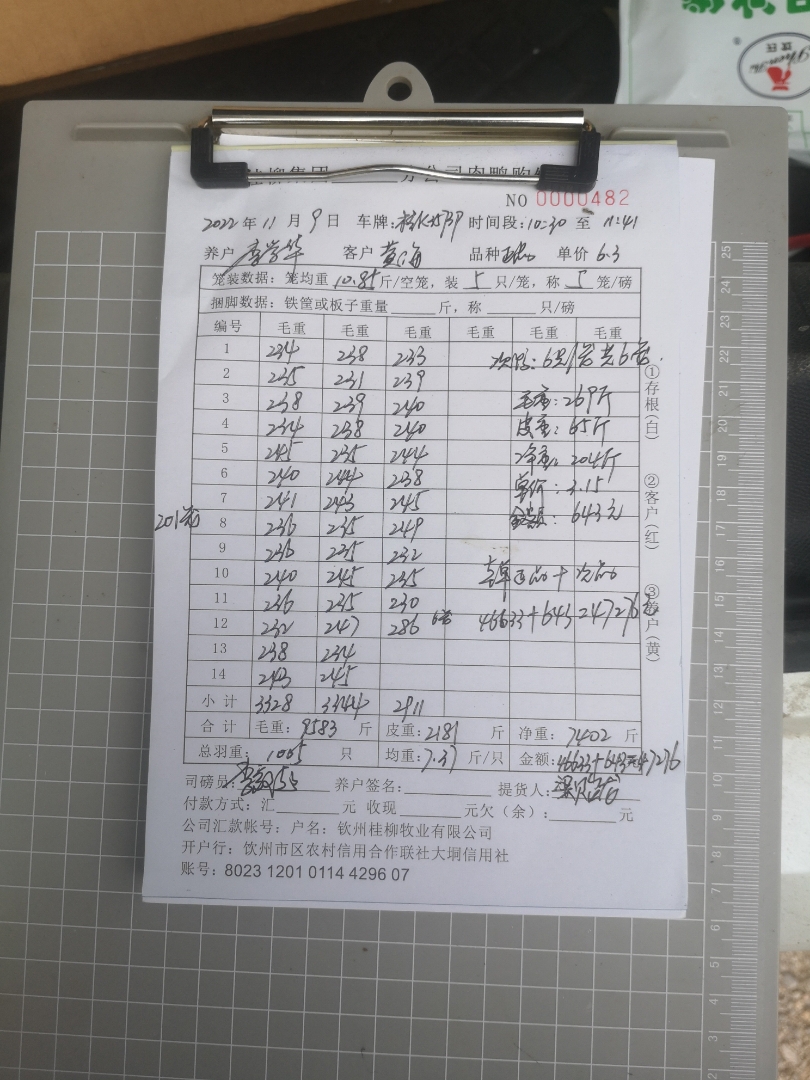 NO 0000482
2022年11月9日 车牌: 时间段:10:30 至 11:41
养户 李学华 客户 黄海 品种 单价 6.3
笼装数据: 笼均重 10.85 斤/空笼, 装 5 只/笼, 称 5 笼/磅
捆脚数据: 铁筐或板子重量 斤, 称 只/磅
编号 毛重 毛重 毛重 毛重 毛重 毛重
1 234 238 233 次鸭: 6只/笼 共6笼.
2 235 231 239
3 238 239 240 毛重: 269斤
4 234 238 240 皮重: 65斤
5 245 235 244 净重: 204斤
6 240 244 238 单价: 3.15
7 241 243 245 金额: 643元
201笼 8 236 235 249
9 236 235 232
10 240 245 235 正品 + 次品
11 236 235 230
12 232 247 286 6笼 46633+643=47276
13 238 234
14 243 245
小计 3328 3344 2911
合计 毛重: 9583 斤 皮重: 2181 斤 净重: 7402 斤
总羽重: 1005 只 均重: 7.37 斤/只 金额: 46633+643=47276
司磅员: 养户签名: 提货人:
付款方式: 汇 元 收现 元欠(余): 元
公司汇款帐号: 户名: 钦州桂柳牧业有限公司
开户行: 饮州市区农村信用合作联社大垌信用社
账号: 8023 1201 0114 4296 07
①存根(白)
②客户(红)
③养户(黄)